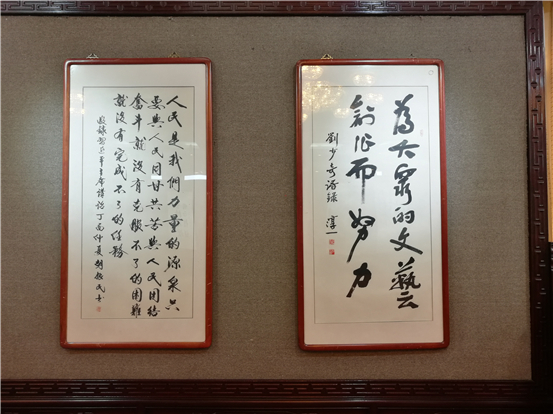 為大眾的文藝
創作而努力
劉少奇語録 淳一
人民是我們力量的源泉只
要與人民同甘共苦與人民團結
奮斗就沒有克服不了的困難
就沒有完成不了的任務
敬録習近平主席講話丁酉仲夏胡振民書